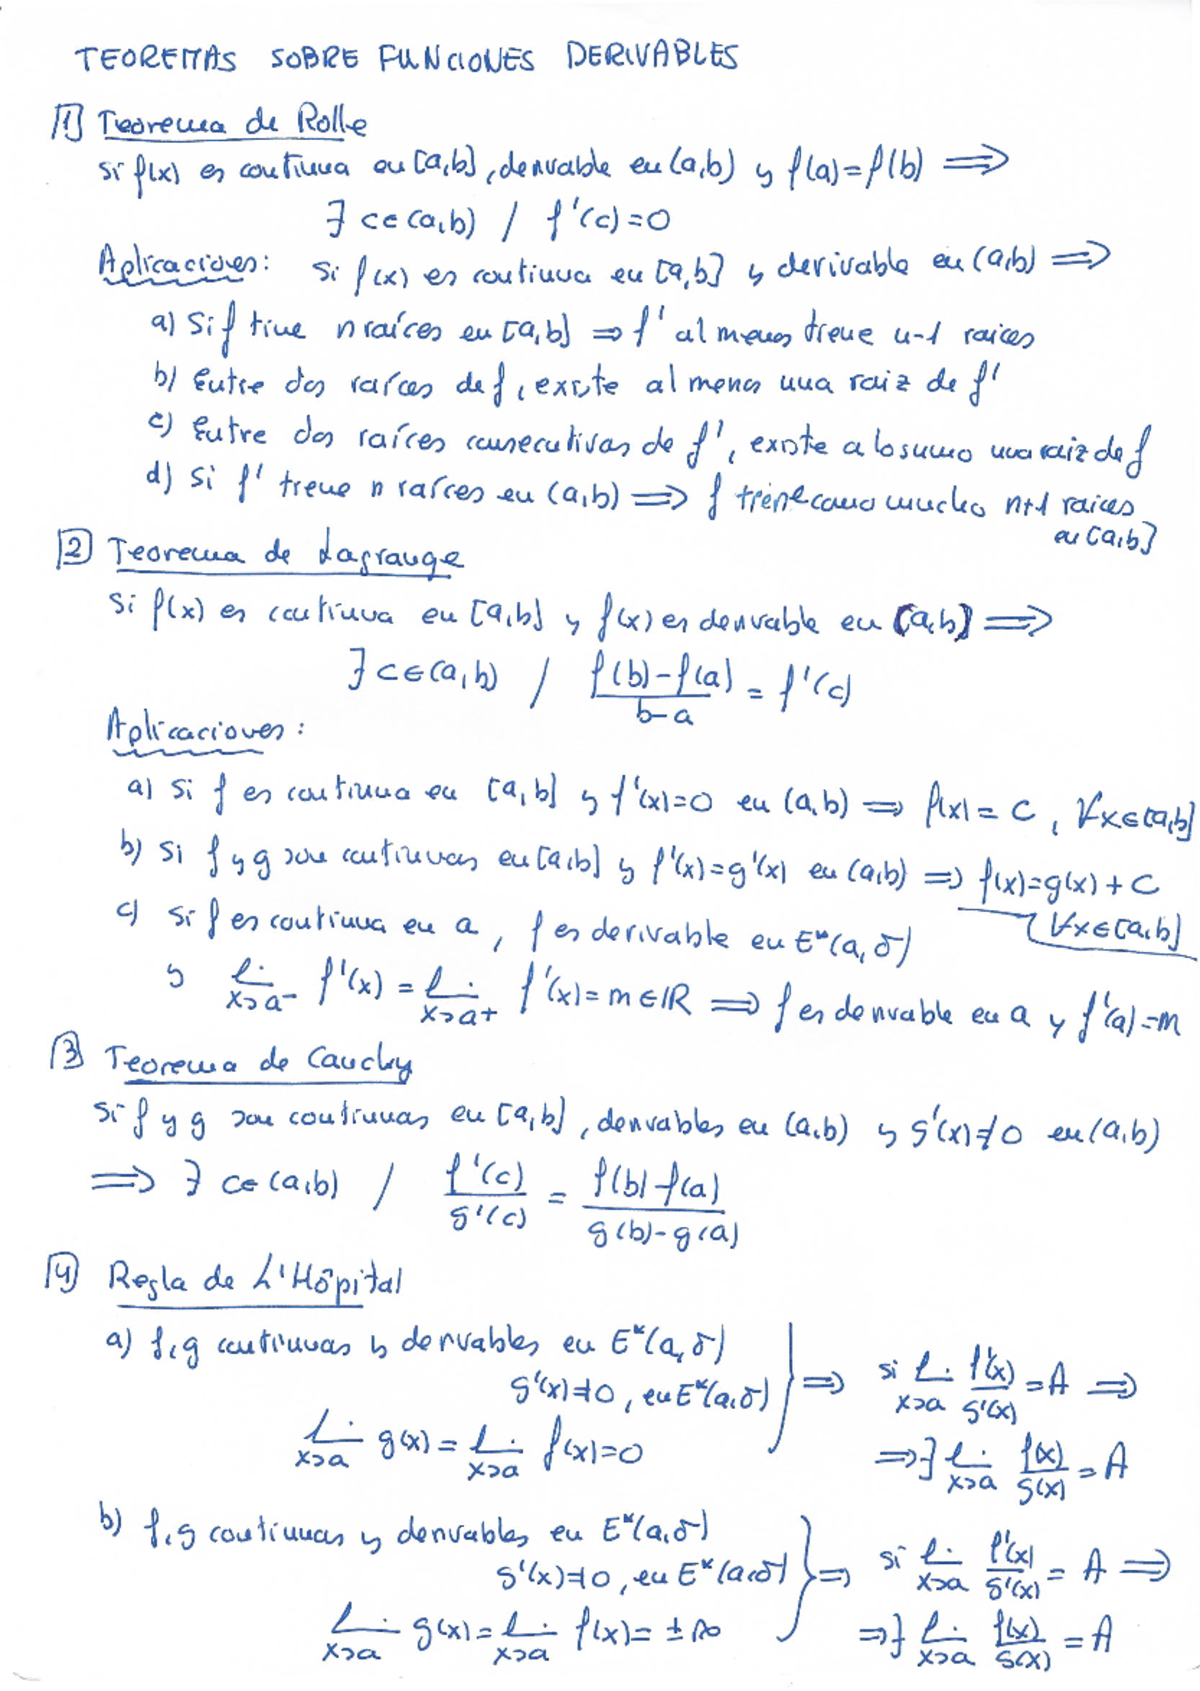 TEOREMAS SOBRE FUNCIONES DERIVABLES
1) Teorema de Rolle
si f(x) es continua en [a,b], derivable en (a,b) y f(a)=f(b) ⟹
∃ c∈(a,b) / f'(c)=0
Aplicaciones: si f(x) es continua en [a,b] y derivable en (a,b) ⟹
a) Si f tiene n raíces en [a,b] ⟹ f' al menos tiene n-1 raices
b) Entre dos raíces de f, existe al menos una raiz de f'
c) Entre dos raíces consecutivas de f', existe a lo sumo una raiz de f
d) Si f' tiene n raíces en (a,b) ⟹ f tiene como mucho n+1 raices
en [a,b]
2) Teorema de Lagrange
Si f(x) es continua en [a,b] y f(x) es derivable en (a,b) ⟹
∃ c∈(a,b) / (f(b)-f(a))/(b-a) = f'(c)
Aplicaciones:
a) Si f es continua en [a,b] y f'(x)=0 en (a,b) ⟹ f(x)=C, ∀x∈[a,b]
b) Si f y g son continuas en [a,b] y f'(x)=g'(x) en (a,b) ⟹ f(x)=g(x)+C
∀x∈[a,b]
c) si f es continua en a, f es derivable en E*(a,δ)
y lim x→a⁻ f'(x) = lim x→a⁺ f'(x)=m∈ℝ ⟹ f es derivable en a y f'(a)=m
3) Teorema de Cauchy
Si f y g son continuas en [a,b], derivables en (a,b) y g'(x)≠0 en (a,b)
⟹ ∃ c∈(a,b) / f'(c)/g'(c) = (f(b)-f(a))/(g(b)-g(a))
4) Regla de L'Hôpital
a) f,g continuas y derivables en E*(a,δ)
g'(x)≠0, en E*(a,δ)
lim x→a g(x) = lim x→a f(x)=0
} ⟹ si lim x→a f'(x)/g'(x) = A ⟹
⟹ ∃ lim x→a f(x)/g(x) = A
b) f,g continuas y derivables en E*(a,δ)
g'(x)≠0, en E*(a,δ)
lim x→a g(x) = lim x→a f(x) = ±∞
} ⟹ si lim x→a f'(x)/g'(x) = A ⟹
⟹ ∃ lim x→a f(x)/g(x) = A